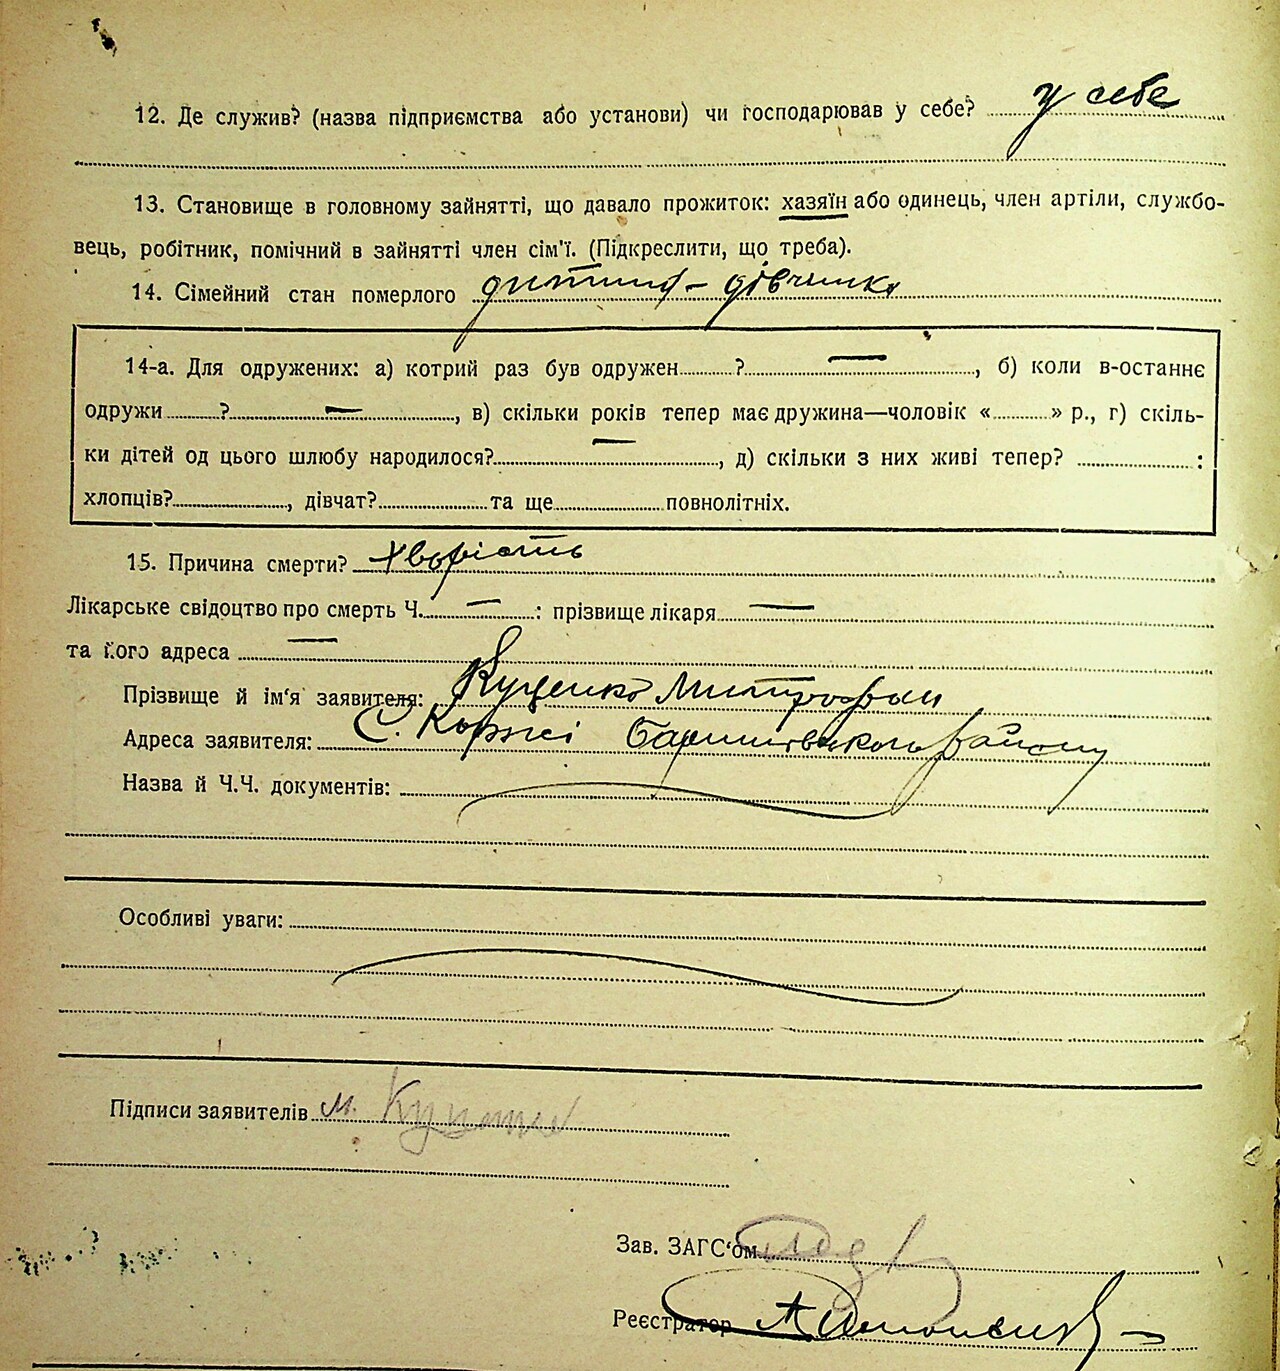 12. Де служив? (назва підприємства або установи) чи господарював у себе? у себе
13. Становище в головному зайнятті, що давало прожиток: хазяїн або одинець, член артіли, службо-
вець, робітник, помічний в зайнятті член сім'ї. (Підкреслити, що треба).
14. Сімейний стан померлого дитина – дівчинка
14-а. Для одружених: а) котрий раз був одружен ? —, б) коли в-останнє
одружи ? —, в) скільки років тепер має дружина—чоловік « » р., г) скіль-
ки дітей од цього шлюбу народилося? —, д) скільки з них живі тепер? :
хлопців? , дівчат? та ще повнолітніх.
15. Причина смерти? хворість
Лікарське свідоцтво про смерть Ч. — : прізвище лікаря —
та його адреса —
Прізвище й ім'я заявителя: Куценко Митрофан
Адреса заявителя: С. Коржі Баришівського району
Назва й Ч.Ч. документів:
Особливі уваги:
Підписи заявителів М.
Зав. ЗАГС'ом
Реєстратор